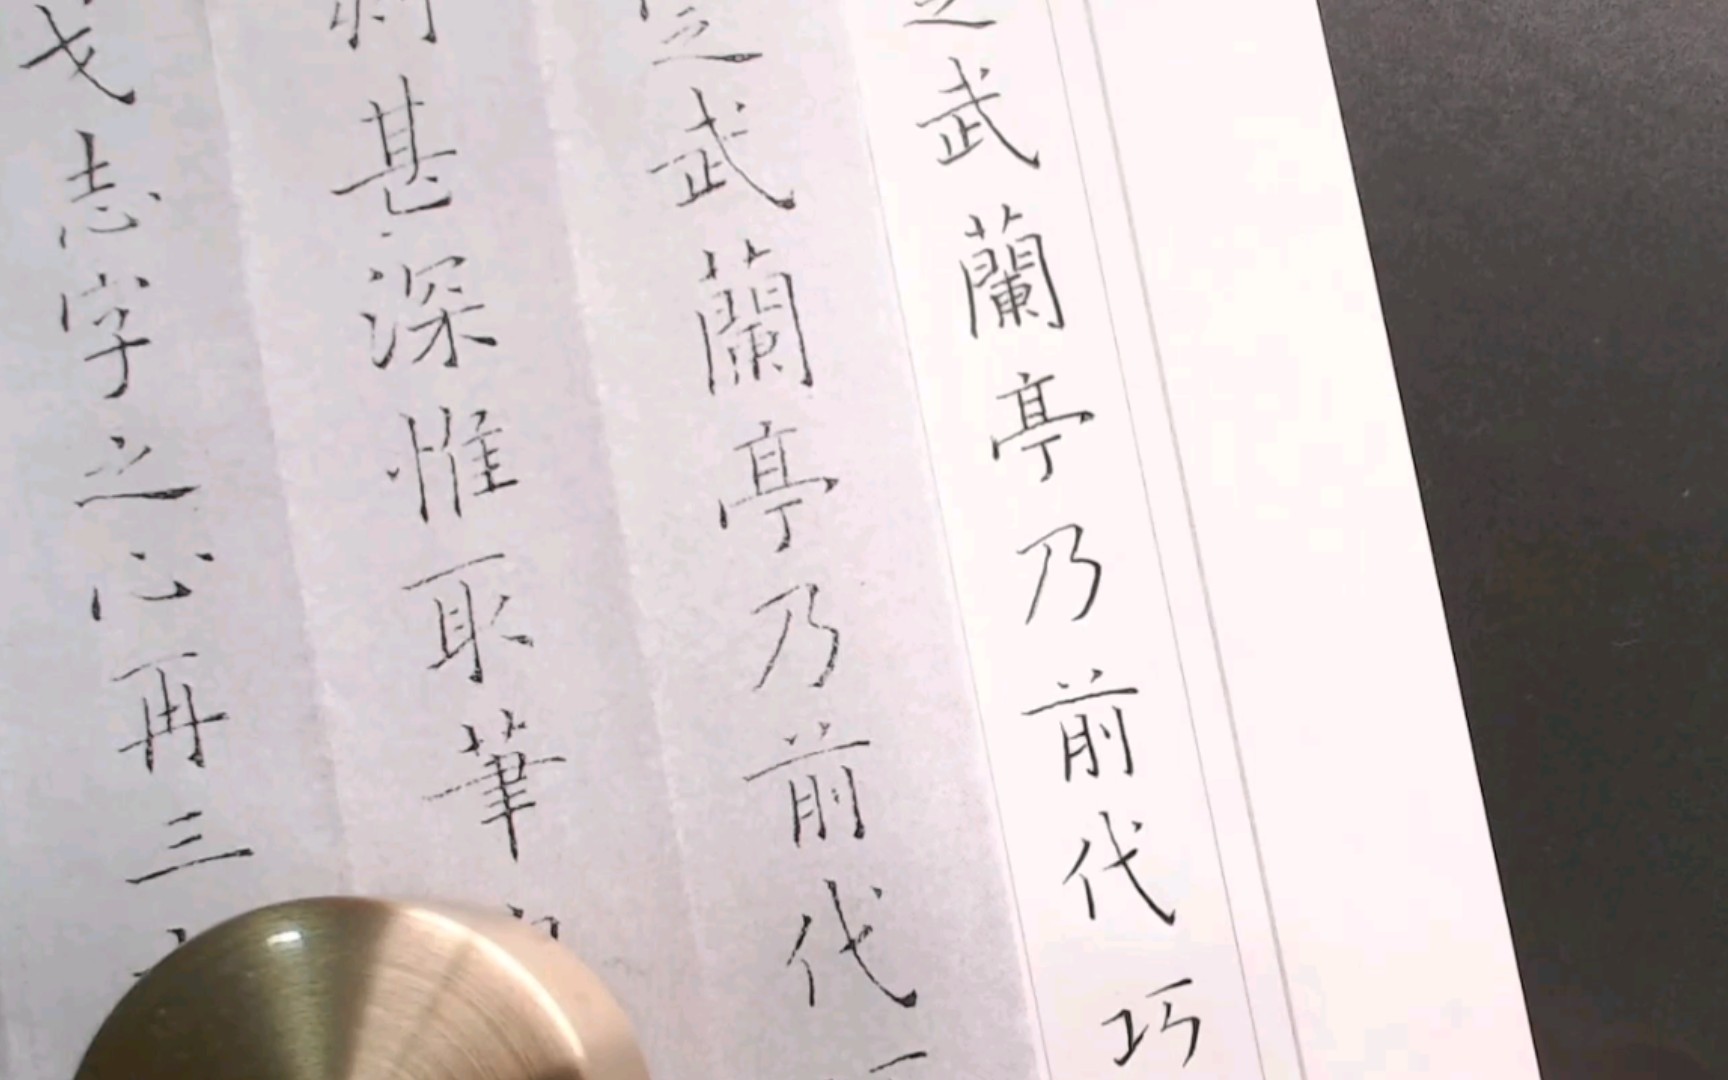 之武蘭亭乃前代巧
武蘭亭乃前代
甚深惟取筆
戈志字之心再三